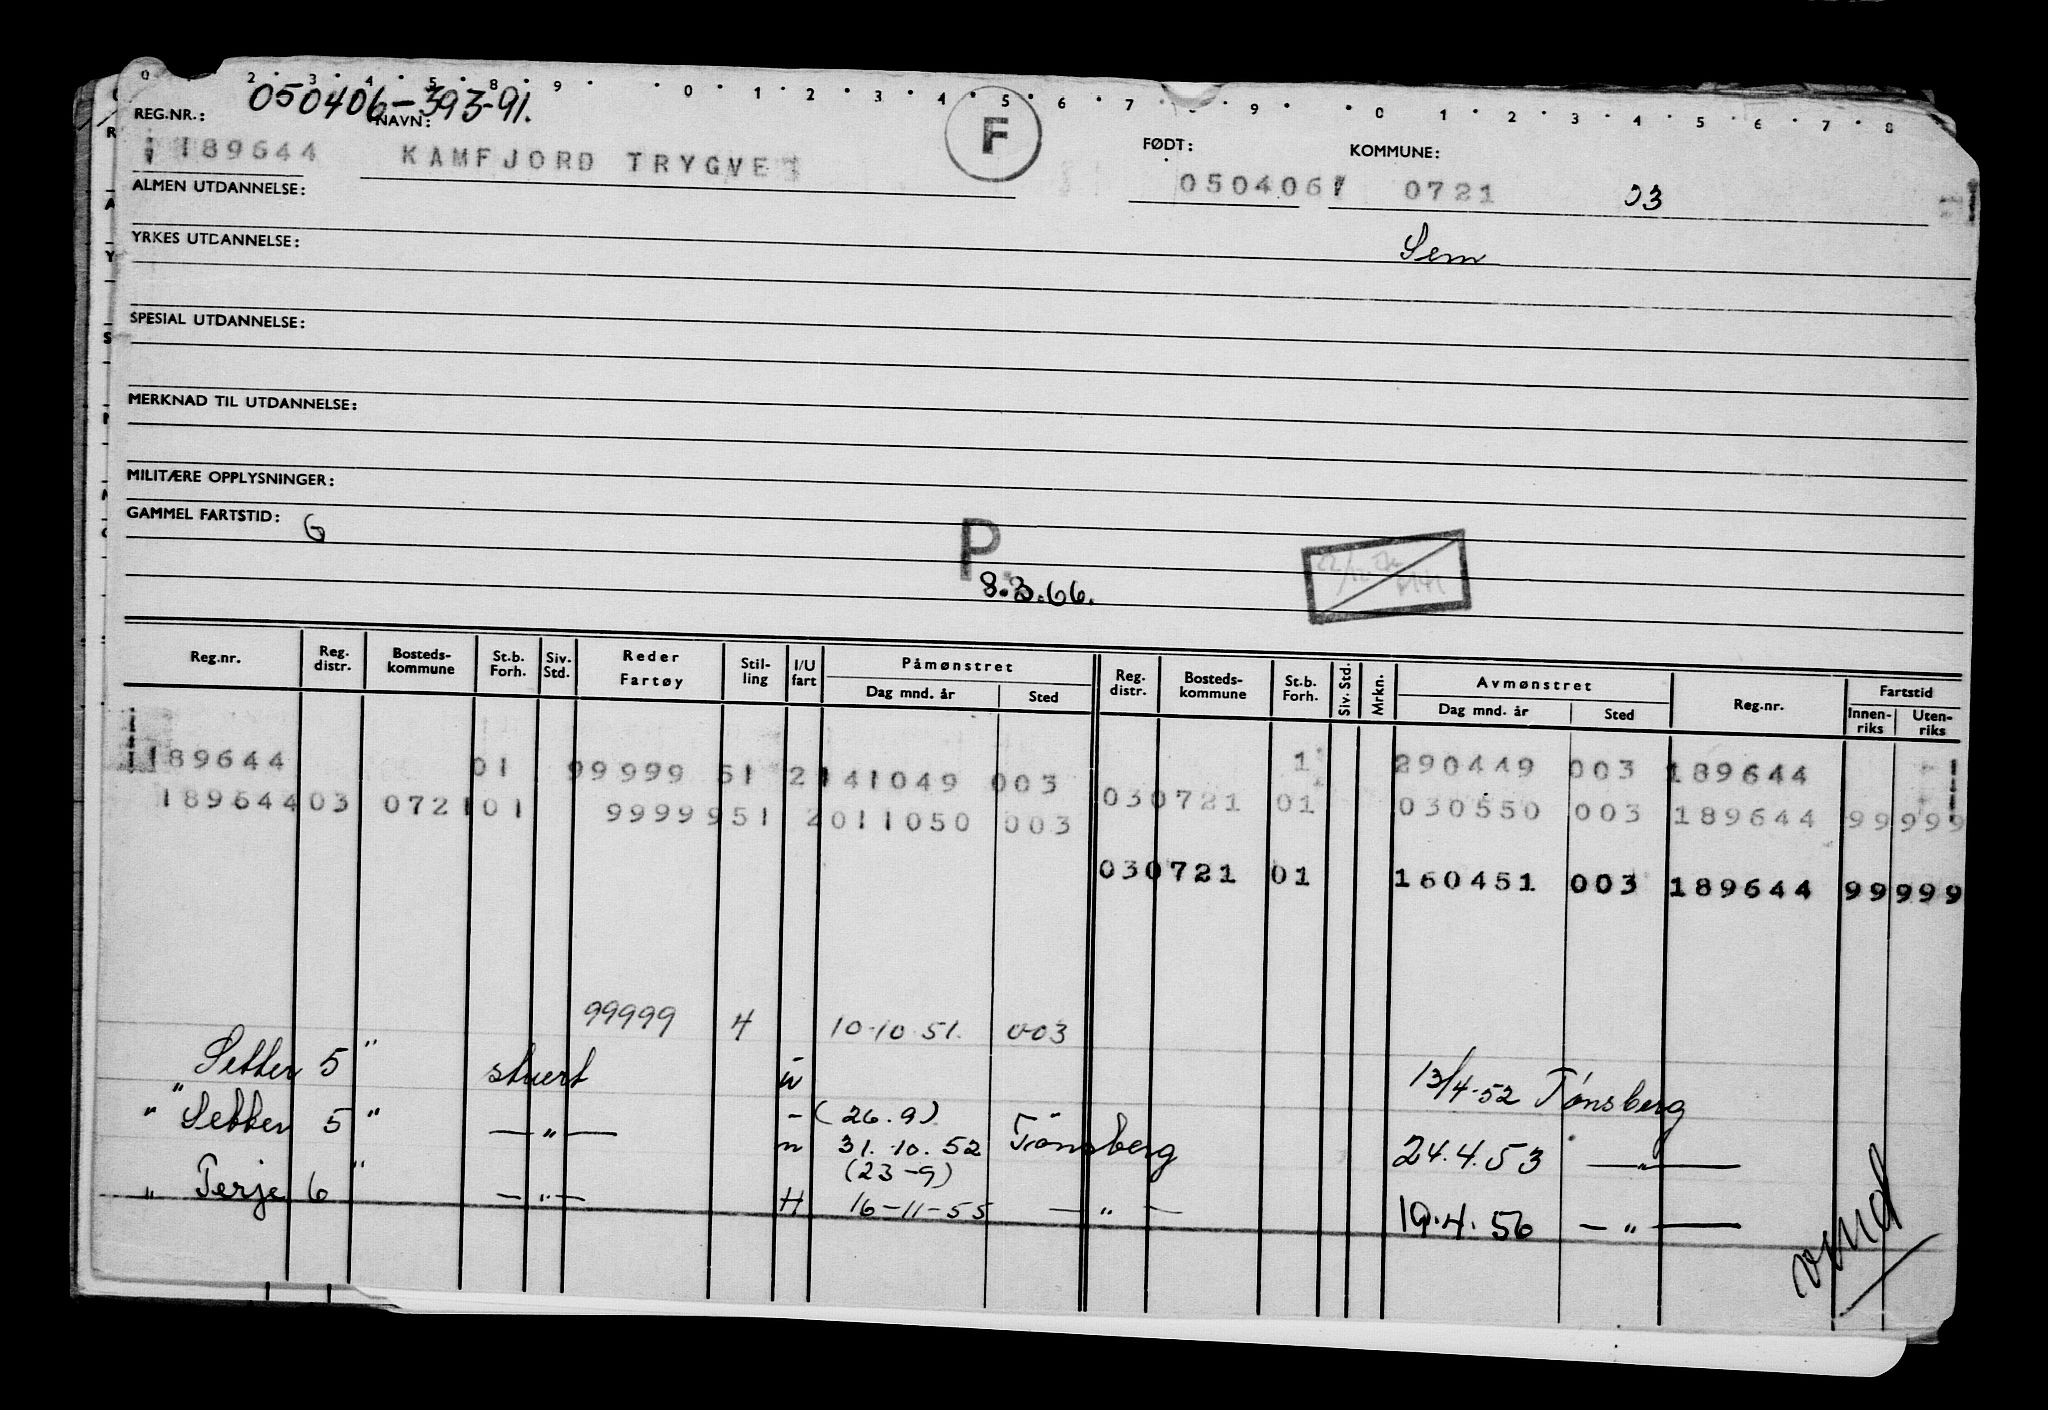 0 2 3 4 5 8 9 0 1 2 3 4 5 6 7 9 0 1 2 3 4 5 6 7 8
050406-393-91.
REG.NR.: NAVN: F FØDT: KOMMUNE:
189644 KAMFJORD TRYGVE 050406 0721 03
ALMEN UTDANNELSE:
YRKES UTDANNELSE: Sem
SPESIAL UTDANNELSE:
MERKNAD TIL UTDANNELSE:
MILITÆRE OPPLYSNINGER:
GAMMEL FARTSTID: G
P.
8.3.66.
Reg.nr. Reg. distr. Bosteds- kommune St.b. Forh. Siv. Std. Reder Fartøy Stil- ling I/U fart Påmønstret Reg. distr. Bosteds- kommune St.b. Forh. Siv. Std. Mrkn. Avmønstret Reg.nr. Fartstid
Dag mnd. år Sted Dag mnd. år Sted Innen- riks Uten- riks
189644 01 99999 51 2 141049 003 1 290449 003 189644
189644 03 0721 01 99999 51 2 011050 003 03 0721 01 030550 003 189644 99 999
03 0721 01 160451 003 189644 99 999
99999 4 10-10 51. 003
Setter 5 " stuert u 13/4-52 Tønsberg
" Setter 5 " —"— - (26.9)
u 31.10.52 Tønsberg 24.4.53 —"—
(23-9)
" Terje 6 " —"— H 16-11-55 —"— 19.4.56 —"—
vend